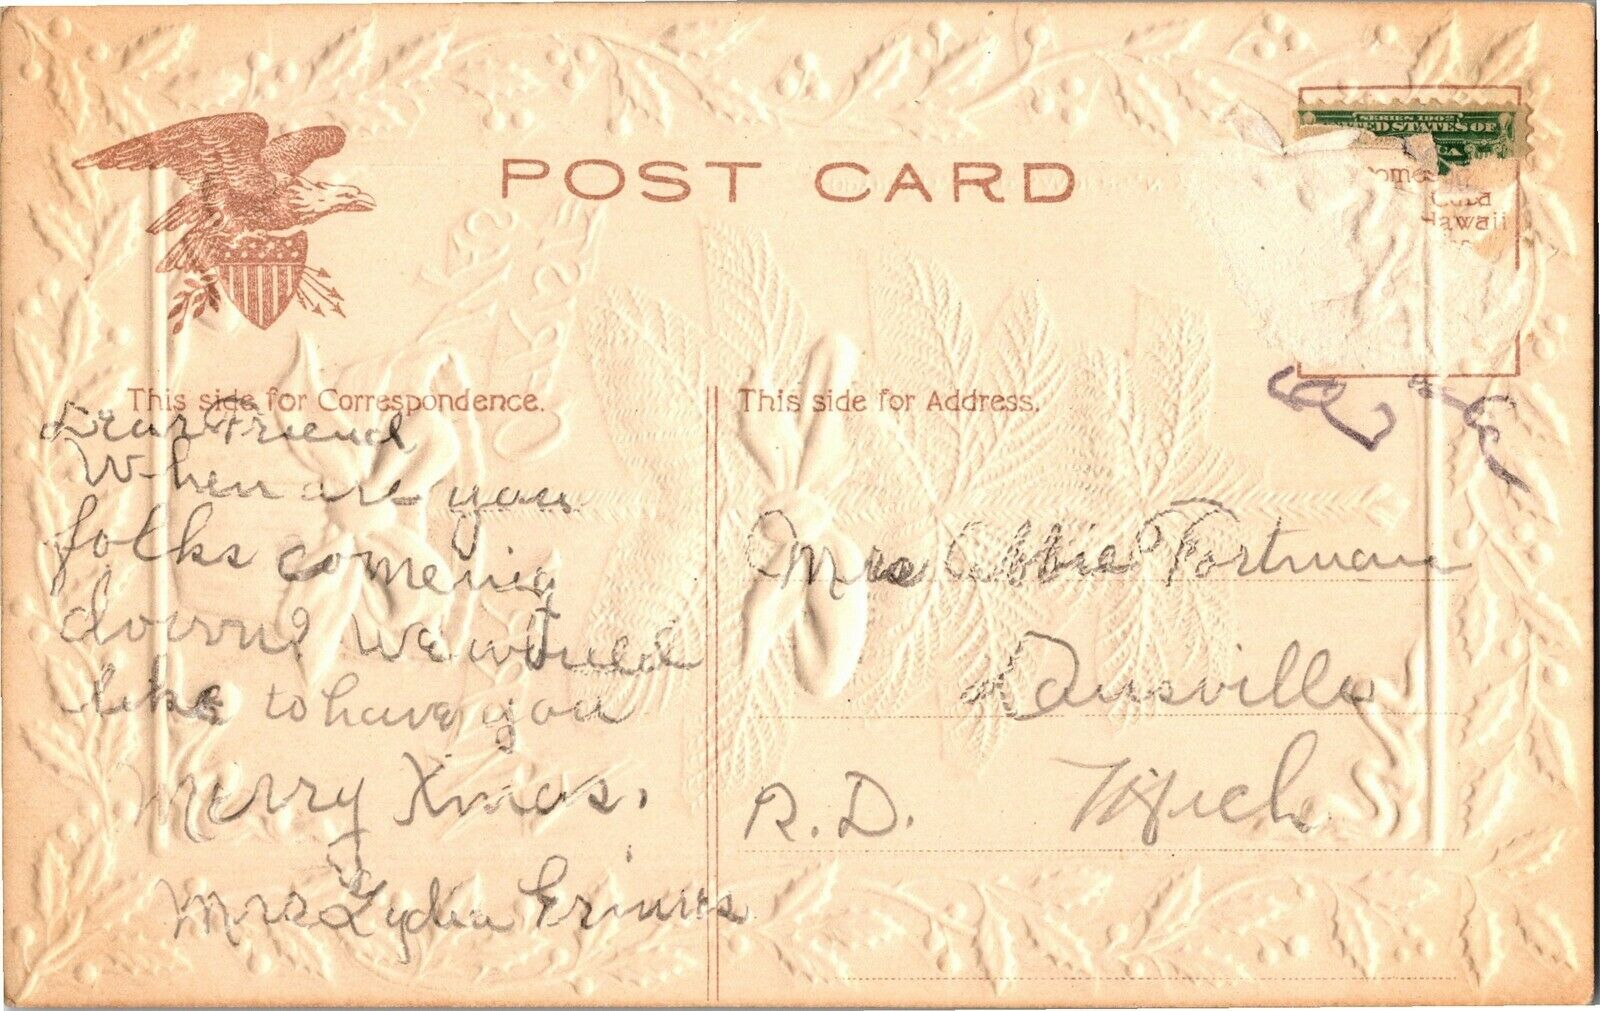 POST CARD
SERIES 1902
UNITED STATES OF
Domes
Cuba
Hawaii
This side for Correspondence.
This side for Address.
Dear Friend
When are you
folks comeing
down? We would
like to have you
Merry Xmas.
Mrs Lydia Grimes
Mrs Abbie Fortman
Dansville
R.D. Mich